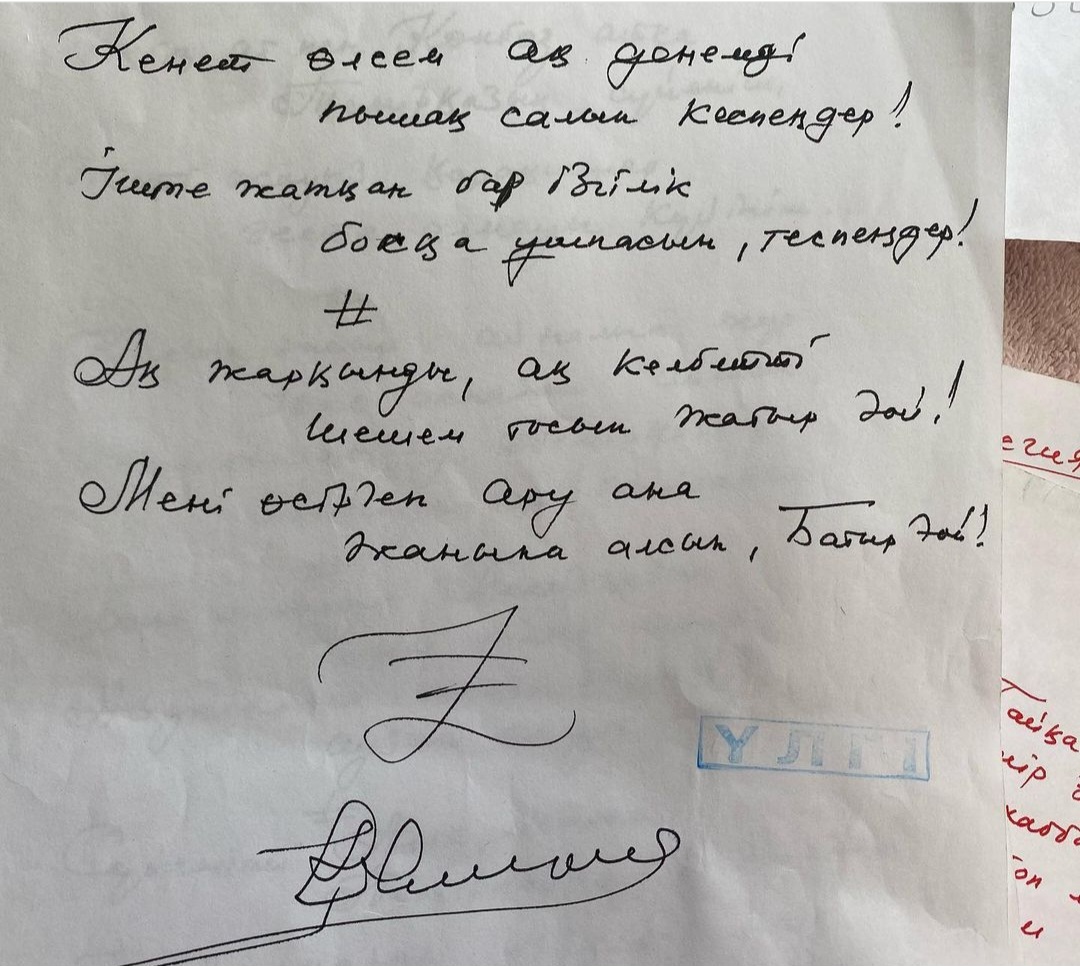 Кенет өлсем ақ денемді
пышақ салып кеспеңдер!
Іште жатқан бар ізгілік
босқа ұшпасын, теспеңдер!
#
Ақ жарқынды, ақ келбетті
шешем тосып жатыр әой!
Мені өсірген ару ана
жаныңа алсын, Батыр әой!
ҮЛГІ
егия